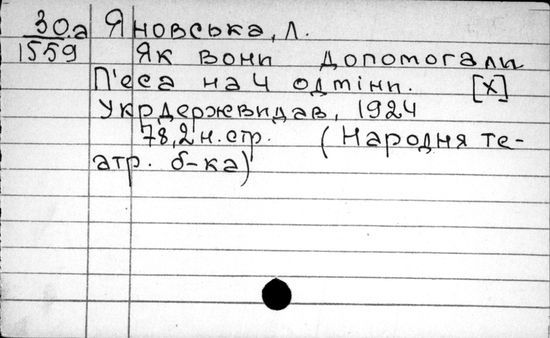 30.а Яновська, Л.
1559 Як вони допомогали
П'єса на 4 одміни. [Х]
Укрдержвидав, 1924
78,2 н. стр. (Народня те-
атр. б-ка)